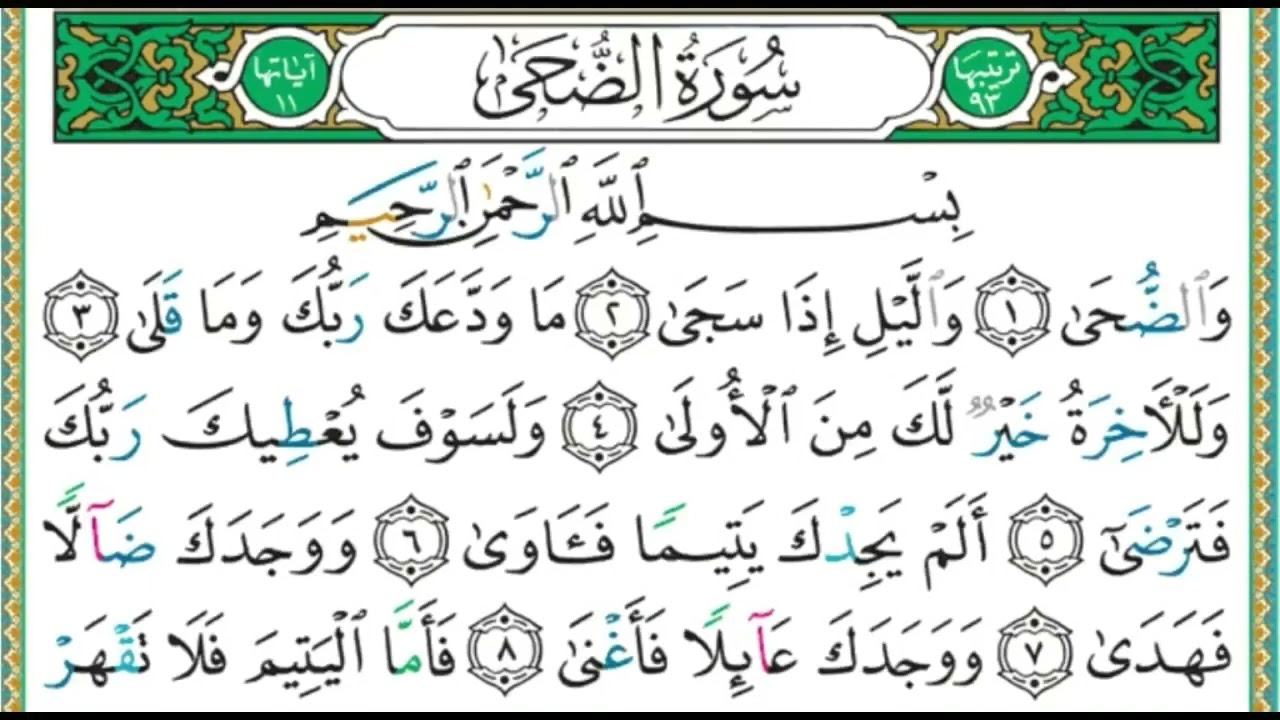 ترتيبها ٩٣ سُورَةُ الضُّحَىٰ آياتها ١١
بِسْمِ ٱللَّهِ ٱلرَّحْمَٰنِ ٱلرَّحِيمِ
وَٱلضُّحَىٰ ١ وَٱلَّيْلِ إِذَا سَجَىٰ ٢ مَا وَدَّعَكَ رَبُّكَ وَمَا قَلَىٰ ٣
وَلَلْـَٔاخِرَةُ خَيْرٌ لَّكَ مِنَ ٱلْأُولَىٰ ٤ وَلَسَوْفَ يُعْطِيكَ رَبُّكَ
فَتَرْضَىٰٓ ٥ أَلَمْ يَجِدْكَ يَتِيمًا فَـَٔاوَىٰ ٦ وَوَجَدَكَ ضَآلًّا
فَهَدَىٰ ٧ وَوَجَدَكَ عَآئِلًا فَأَغْنَىٰ ٨ فَأَمَّا ٱلْيَتِيمَ فَلَا تَقْهَرْ